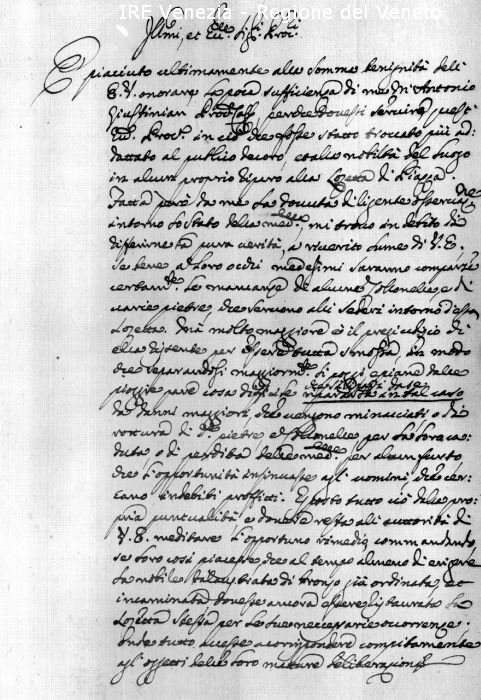 IRE Venezia - Regione del Veneto
Ill.mi, et Ecc.mi Sig.ri Proc.ri
È piaciuto ultimamente alla somma benignità dell
E.V. onorare la poca sufficienza di me Dri Antonio
Giustinian perche dovesti servire questi
Ecc. Proc.ri in ciò che fosse stato trovato più ad-
dattato al publico decoro, et alla nobiltà del luogo
in alcun proprio riparo alla Logetta di Piazza.
Fatta però da me la dovuta diligente osservaz.ne
intorno lo stato della med.ma mi trovo in debito di
differirne la pura verità, a riverito lume di V.E.
Se bene a loro occhi medesimi saranno comparse
le mancanze di alcune Collonelle, e di
varie pietre che servono alli sederi intorno d'essa
Logetta. Mà molto maggiore è il pregiudizio di
ella risente per esser tutta smossa, in modo
che separandosi maggiorm.te li pezzi, e piane dalle
pioggie pare cosa difficile
da danni maggiori, che vengono minacciati o di
rottura di d.e pietre e Collonelle per la loro ca-
duta, o di perdita delle med.me per alcun furto
che l'opportunità insinuasse agl'uomini che cer-
cano indebiti proffitti. Esposto tutto ciò dalla pro-
pria puntualità, e dovere resta all'autorità di
V.E. meditare l'opportuno rimedio commandando,
se loro così piacesse, che al tempo almeno di erigere
la nobile balaustrata di bronzo già ordinata, et
incaminata dovesse ancora essere ristaurata la
Logetta stessa per le sue neccessarie occorrenze.
Onde tutto avesse a corrispondere compitamente
agl'oggetti delle loro mature deliberazioni